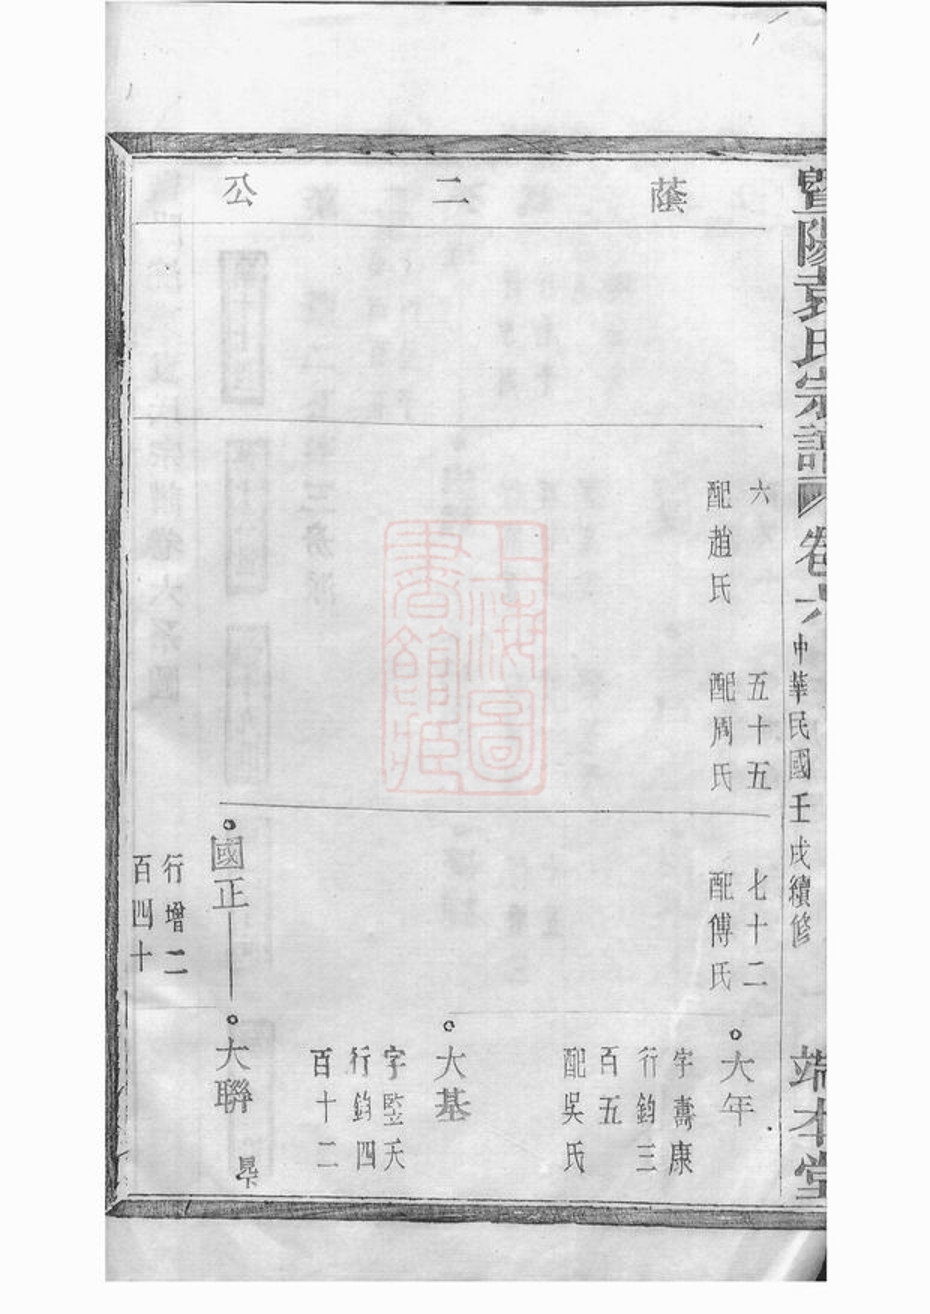 暨陽袁氏宗譜 卷六 中華民國壬戌續修 端本堂
蔭二公
六
配趙氏
五十五
配周氏
七十二
配傅氏
大年
字壽康
行鈞三
百五
配吳氏
大基
字堅夭
行鈞四
百十二
國正
大聯
行增二
百四十
上海圖
書館藏